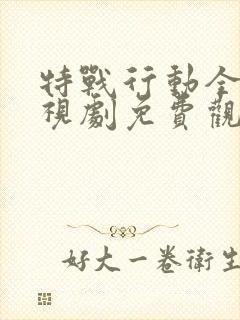 特戰行動全
視劇免費觀
好大一卷衛生